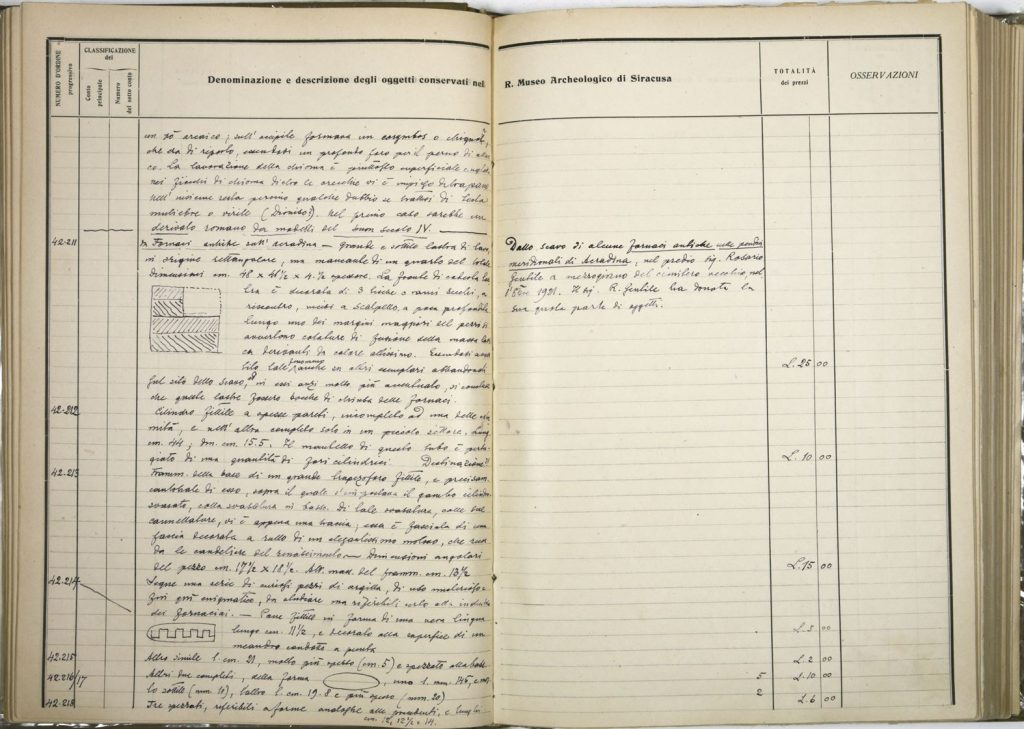 NUMERO D'ORDINE progressivo
CLASSIFICAZIONE del
Conto principale
Numero del sotto conto
Denominazione e descrizione degli oggetti conservati nel R. Museo Archeologico di Siracusa
TOTALITÀ dei prezzi
OSSERVAZIONI
un pò arcaico; sull' occipite formava un corymbos o
che da di riporto, un profondo foro per il perno di
co. La lavorazione della chioma è piuttosto superficiale
nei fiocchi di chioma dietro le orecchie vi è impiego
nell' insieme resta persino qualche dubbio se trattasi di testa
muliebre o virile (Dioniso?). Nel primo caso sarebbe un
derivato romano da modelli del buon secolo IV.
42.211
Fornaci antiche sull' acradina — Grande e sottile lastra di
in origine rettangolare, ma mancante di un quarto del totale
dimensioni cm. 48 x 41 1/2 x 4 1/2 spessore. La fronte di
è decorata di 3 lische o rami secchi, a
riscontro, incisi a scalpello, a poca profondità
lungo uno dei margini maggiori del pezzo si
avvertono colature di fusione della massa
ca derivanti da calore altissimo.
tale in altri esemplari abbandonati
sul sito dello scavo, in essi anzi molto più accentuato, si
che queste lastre fossero bocche di chiusa delle fornaci.
42.212
Cilindro fittile a spesse pareti, incompleto ad una delle
mità, e nell' altra completo solo in un piccolo settore. Lung.
cm. 44; dm. cm. 15.5. Il mantello di questo tubo è
giato di una quantità di fori cilindrici. Destinazione?
42.213
Framm. della base di un grande trapezoforo fittile, e precisam.
di esso, sopra il quale s'impostava il gambo
svasato, colla svasatura in basso. Di tale svasatura, colle sue
cannellature, vi è appena una traccia; essa è fasciata di una
fascia decorata a rullo di un elegantissimo motivo, che
da le candeliere del rinascimento — Dimensioni angolari
del pezzo cm. 17 1/2 x 18 1/2. Alt. max. del framm. cm. 13 1/2
42.214
Segue una serie di curiosi pezzi di argilla, di uso
fini più enigmatico, da studiare ma riferibili certo alla industria
dei fornaciai. — Pane fittile in forma di una vera lingua
lungo cm. 11 1/2, e decorato alla superficie di un
meandro condotto a punta
42.215
Altro simile l. cm. 21, molto più spesso (cm. 5) e spezzato alla base
42.216/17
Altri due completi, della forma , uno l. mm. 145, e
lo sottile (mm. 10), l'altro l. cm. 19.8 e più spesso (mm. 20)
42.218
Tre spezzati, riferibili a forme analoghe alle precedenti, e lunghi
cm. 12, 12 1/2 e 14.
Dallo scavo di alcune fornaci antiche nelle pendici
meridionali di Acradina, nel predio Sig. Rosario
Gentile a mezzogiorno del cimitero vecchio, nel
1921. Il sig. R. Gentile ha donata la
sua quota parte di oggetti.
L. 25 00
L. 10 00
L. 15 00
L. 3 00
L. 2 00
5 L. 10 00
2 L. 6 00